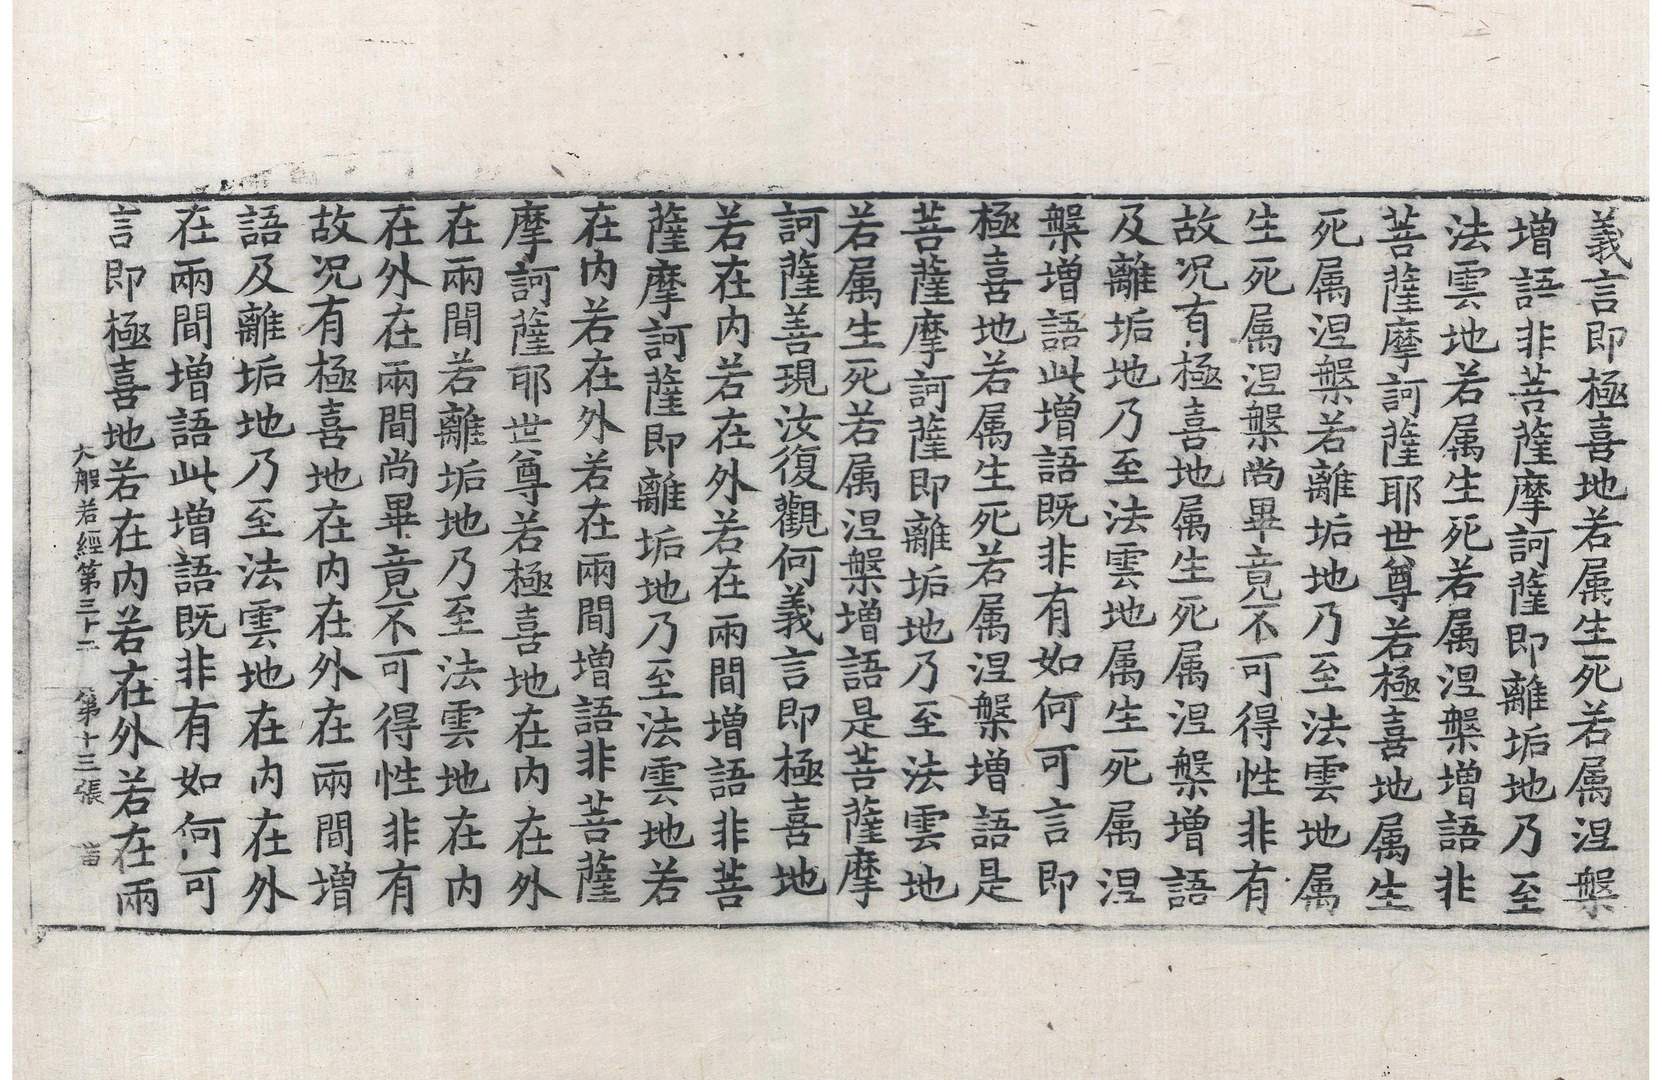 義言即極喜地若属生死若属涅槃
增語非菩薩摩訶薩即離垢地乃至
法雲地若属生死若属涅槃增語非
菩薩摩訶薩耶世尊若極喜地属生
死属涅槃若離垢地乃至法雲地属
生死属涅槃尚畢竟不可得性非有
故况有極喜地属生死属涅槃增語
及離垢地乃至法雲地属生死属涅
槃增語此增語既非有如何可言即
極喜地若属生死若属涅槃增語是
菩薩摩訶薩即離垢地乃至法雲地
若属生死若属涅槃增語是菩薩摩
訶薩善現汝復觀何義言即極喜地
若在內若在外若在兩間增語非菩
薩摩訶薩即離垢地乃至法雲地若
在內若在外若在兩間增語非菩薩
摩訶薩耶世尊若極喜地在內在外
在兩間若離垢地乃至法雲地在內
在外在兩間尚畢竟不可得性非有
故况有極喜地在內在外在兩間增
語及離垢地乃至法雲地在內在外
在兩間增語此增語既非有如何可
言即極喜地若在內若在外若在兩
大般若經第三十二 第十三張